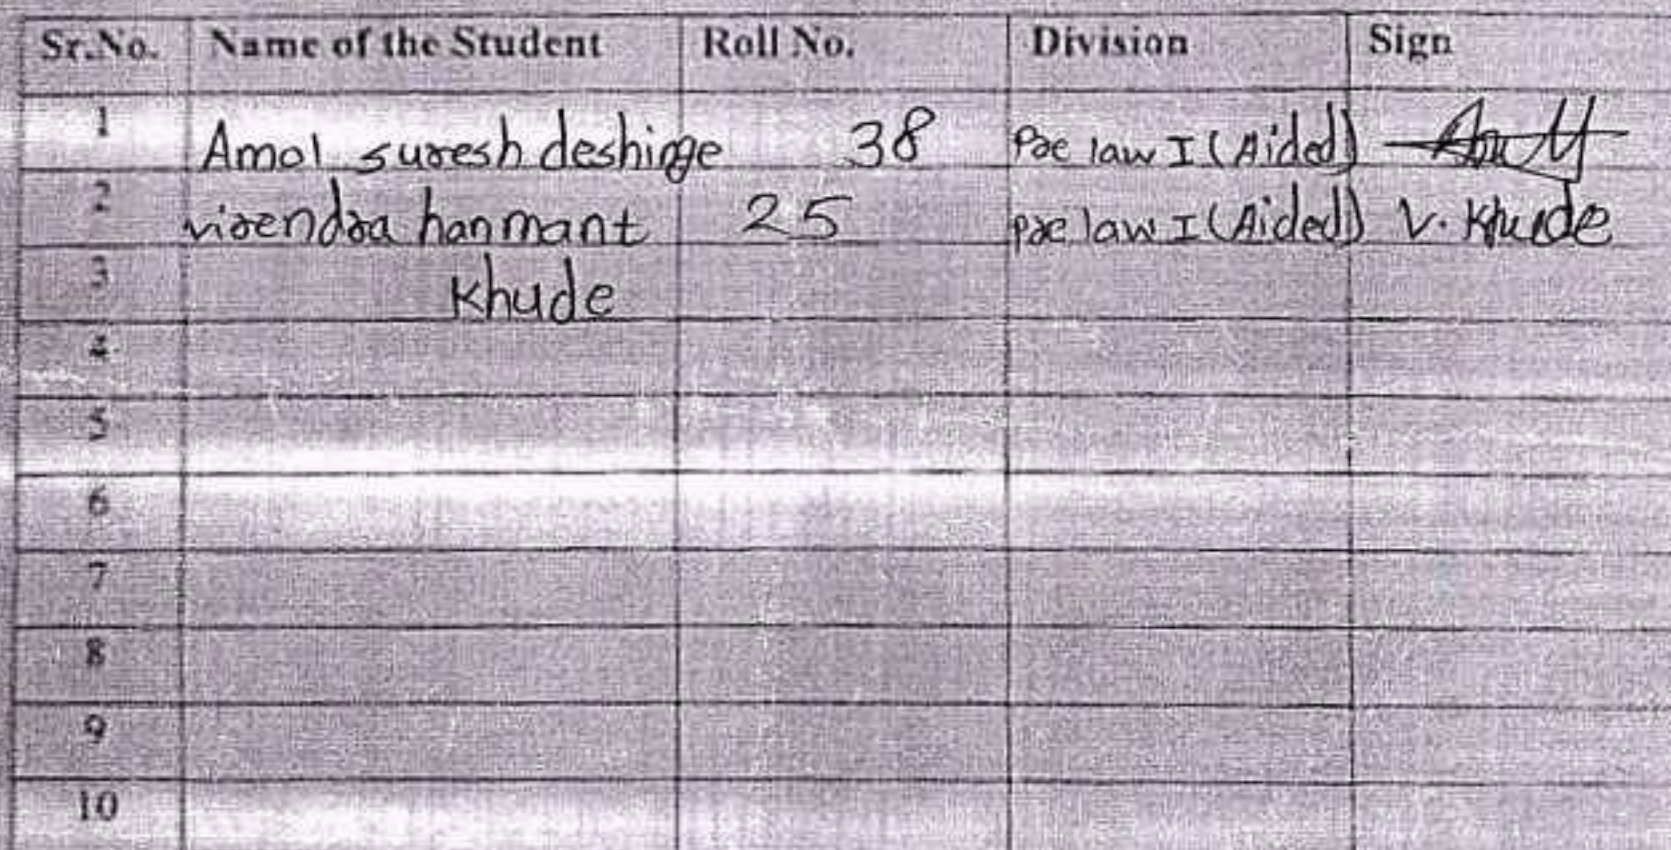 Sr.No. Name of the Student Roll No. Division Sign
1 Amol suresh deshinge 38 Pre law I (Aided)
2 virendra hanmant 25 pre law I (Aided) V. Khude
3 Khude
4
5
6
7
8
9
10